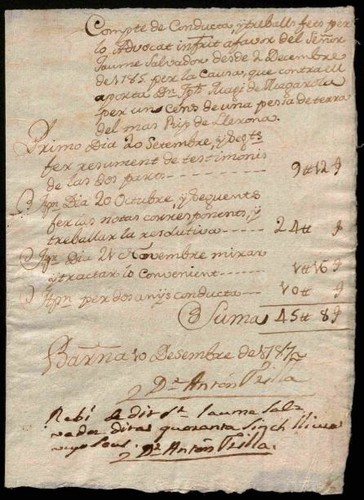 Compte de Conducta, y treballs fets per
lo Advocat infrit a favor del Señor
Jaume Salvador desde 2 Decembre
de 1785 per la Causa, que contra ell
aporta Dn. de
per un Cens de una pessa de terra
del mas Puig de Llerona.
Primo Dia 20 Setembre, y
fer resument de testimonis
de las dos parts 9 12
Ittn Dia 20 Octubre, y seguents
fer las notas corresponens, y
treballar la resolutiva 24
Ittn Dia 21 Novembre mirar
y tractar lo Convenient 1 16
Ittn per dos anys conducta 10
Suma 45 8
Barna 10 Desembre de 1787
Dr. Anton
Rebi de dit Sr. Jaume Sal-
vador ditas quaranta sinch lliuras
vuyt sous. Dr. Anton